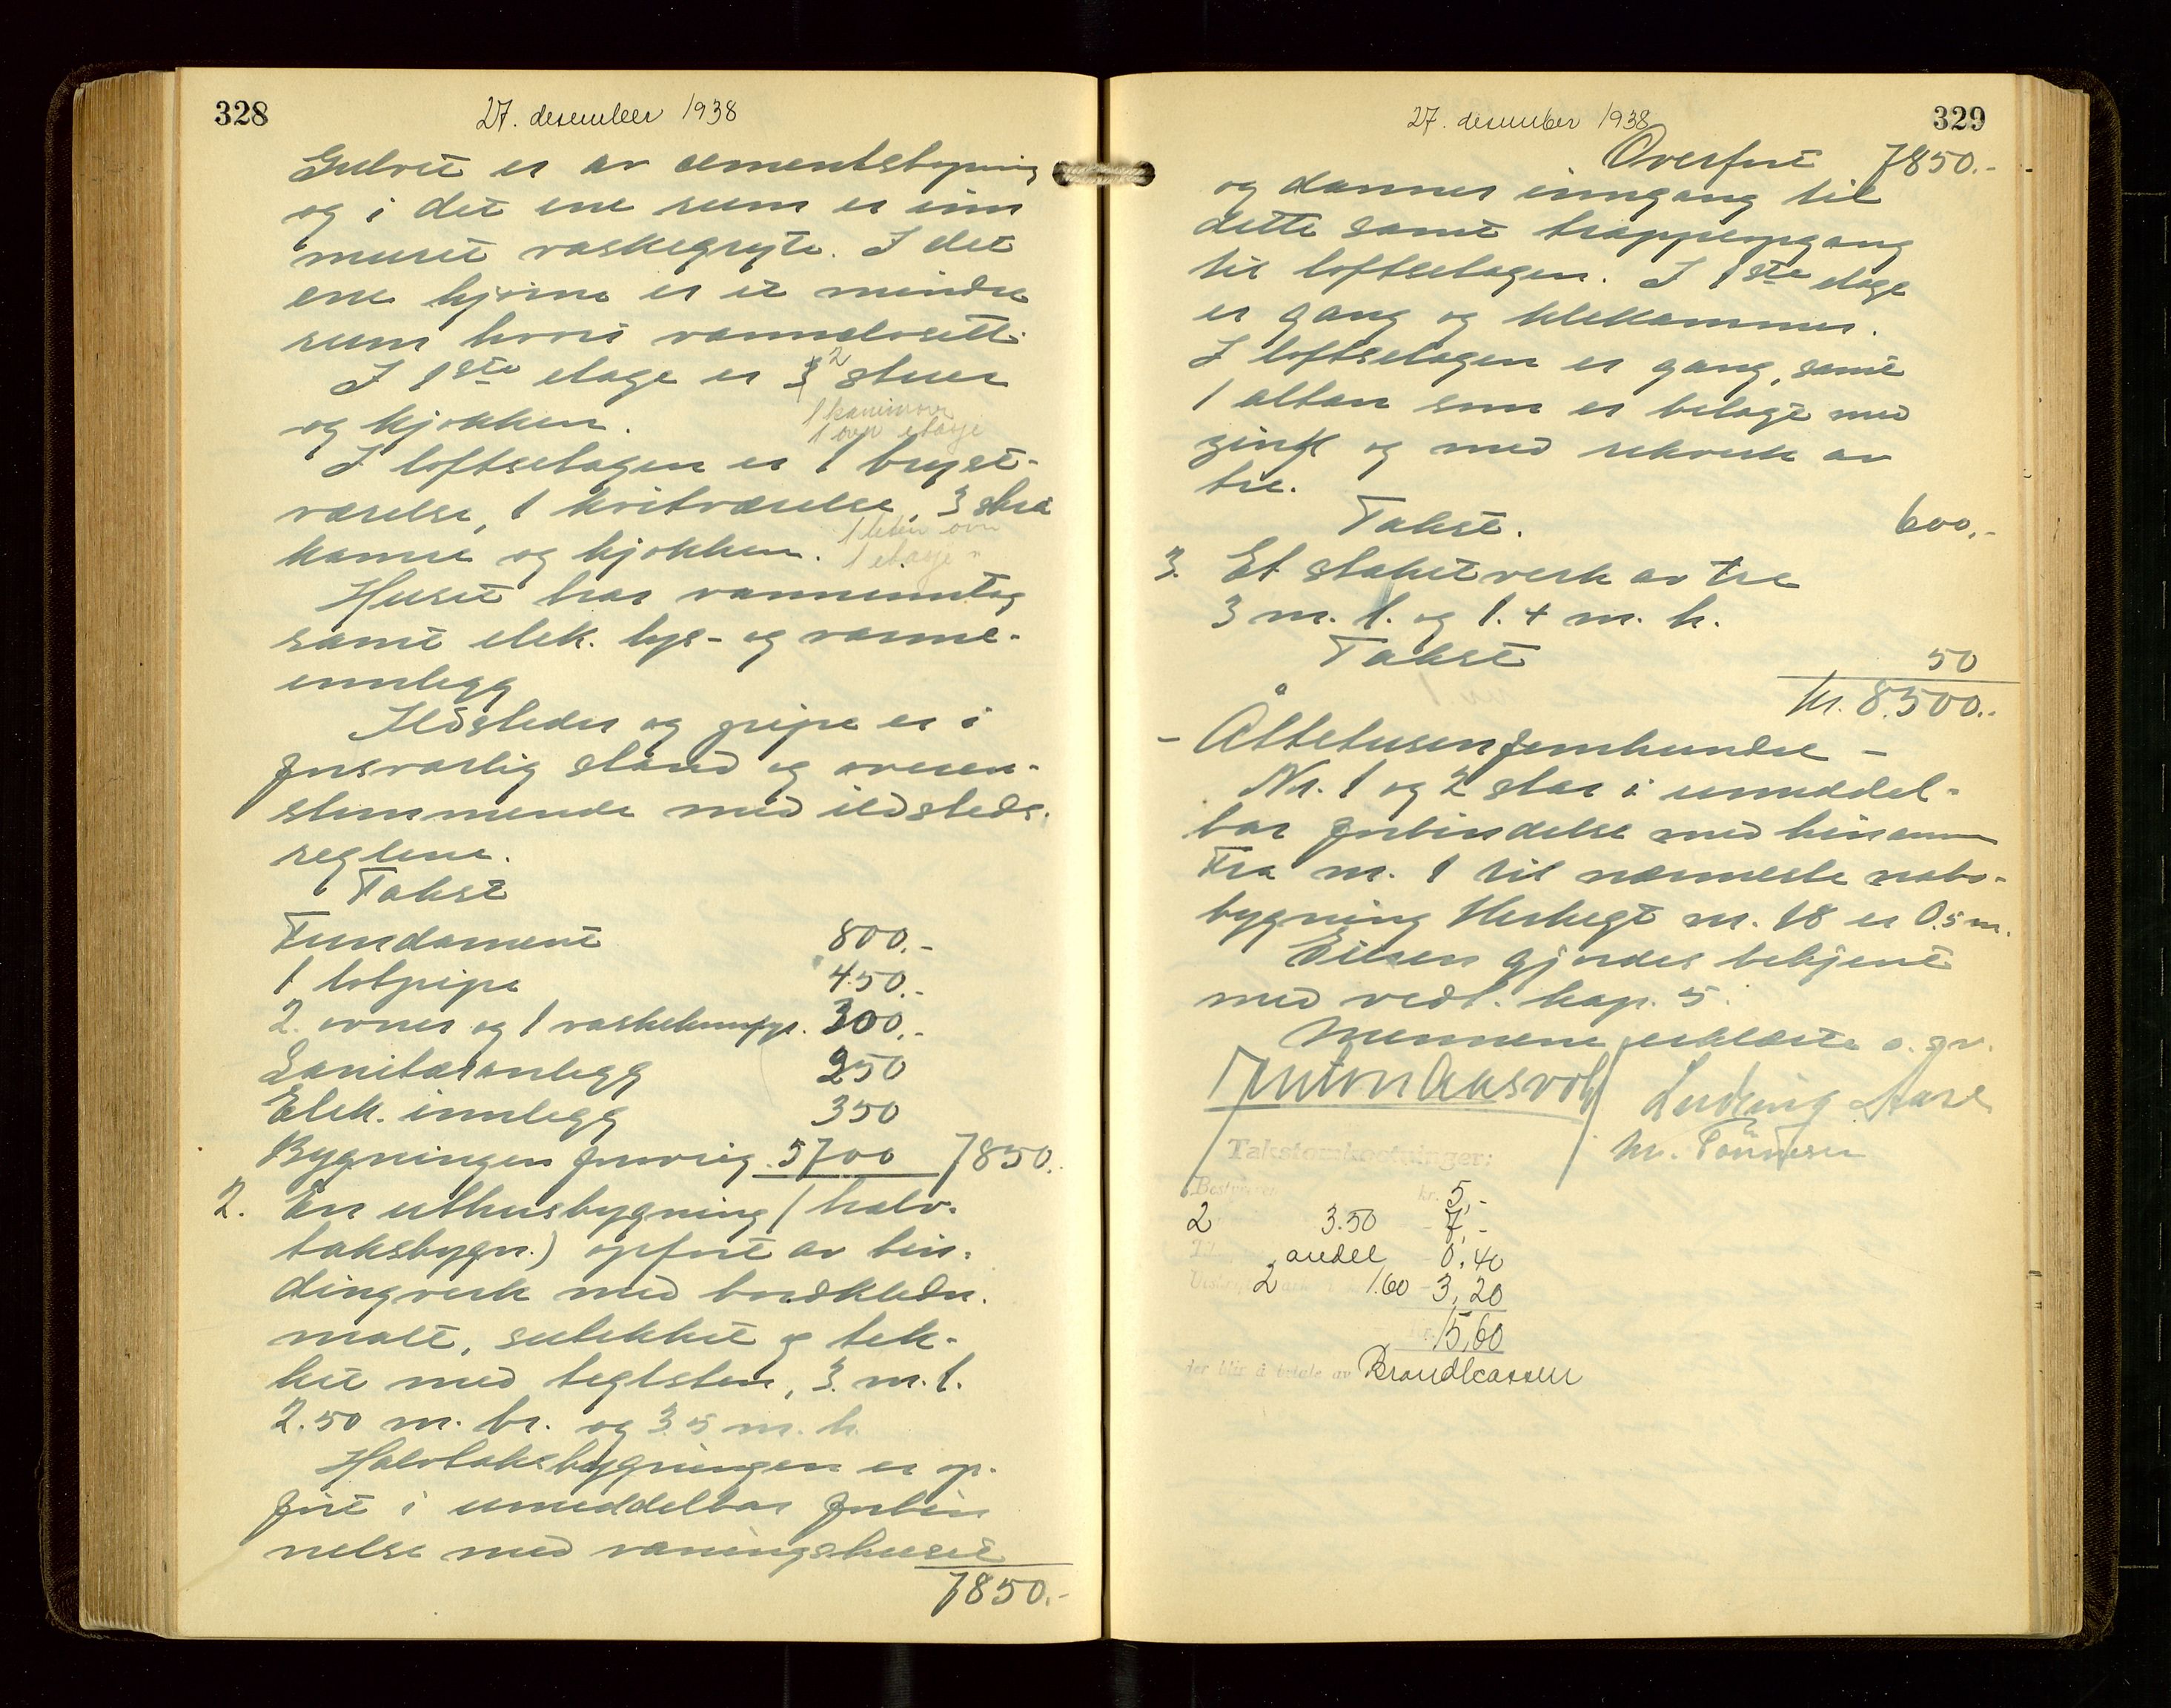 328
27. desember 1938
Gulvet er av cementstøpning
og i det ene rum er inn
muret vaskegryte. I det
ene hjørne er et mindre
rum hvori vannklosett.
I 1ste etage er 2 stuer
og kjøkken.
1 kaminovn
1 ovn etasje
I loftsetagen er 1 bryst-
værelse, 1 kvistværelse, 3 skrå
kamre og kjøkken.
1 liten ovn
1 etasje "
Huset har vanninntag
samt elek. lys- og varme-
innlegg
Ildsteder og pipe er i
forsvarlig stand og overen-
stemmende med ildsteds-
reglene.
Takst
Fundament 800.-
1 løtpipe 450.-
2 ovner og 1 vaskekumfyr. 300.-
Sanitæranlegg 250
Elek. innlegg 350
Bygningen forøvrig 5700 7850.
2. En uthusbygning (halv-
taksbygn.) opført av bin-
dingverk med bordkledn.
malt, sutekket og tek-
ket med teglsten, 3. m. l.
2.50 m. br. og 3.5 m. h.
Halvtaksbygningen er op-
ført i umiddelbar forbin
nelse med våningshuset
7850.-
329
27. desember 1938
Overført 7850.-
og danner inngang til
dette samt trappeopgang
til loftsetagen. I 1ste etage
er gang og klekammer.
I loftsetagen er gang, samt
1 altan som er belagt med
zink og med rekverk av
tre.
Takst. 600.-
3. Et stakitverk av tre
3 m. l. og 1.4 m. h.
Takst 50
kr. 8.500.-
- Åttetusenfemhundre -
Nr. 1 og 2 står i umiddel-
bar forbindelse med hinannen
Fra nr. 1 til nærmeste nabo-
bygning Herbegt nr. 18 er 0.5 m.
Eieren gjordes bekjent
med vedt. kap. 5.
Mennene erklærte o. gr.
Anton Aasvoll Ludvig Aase
M. Tønnesen
Takstomkostninger:
Bestyrer kr. 5,-
2 3.50 - 7,-
andel - 0,40
2 1.60 - 3,20
kr. 15,60
der blir å betale av Brandkassen